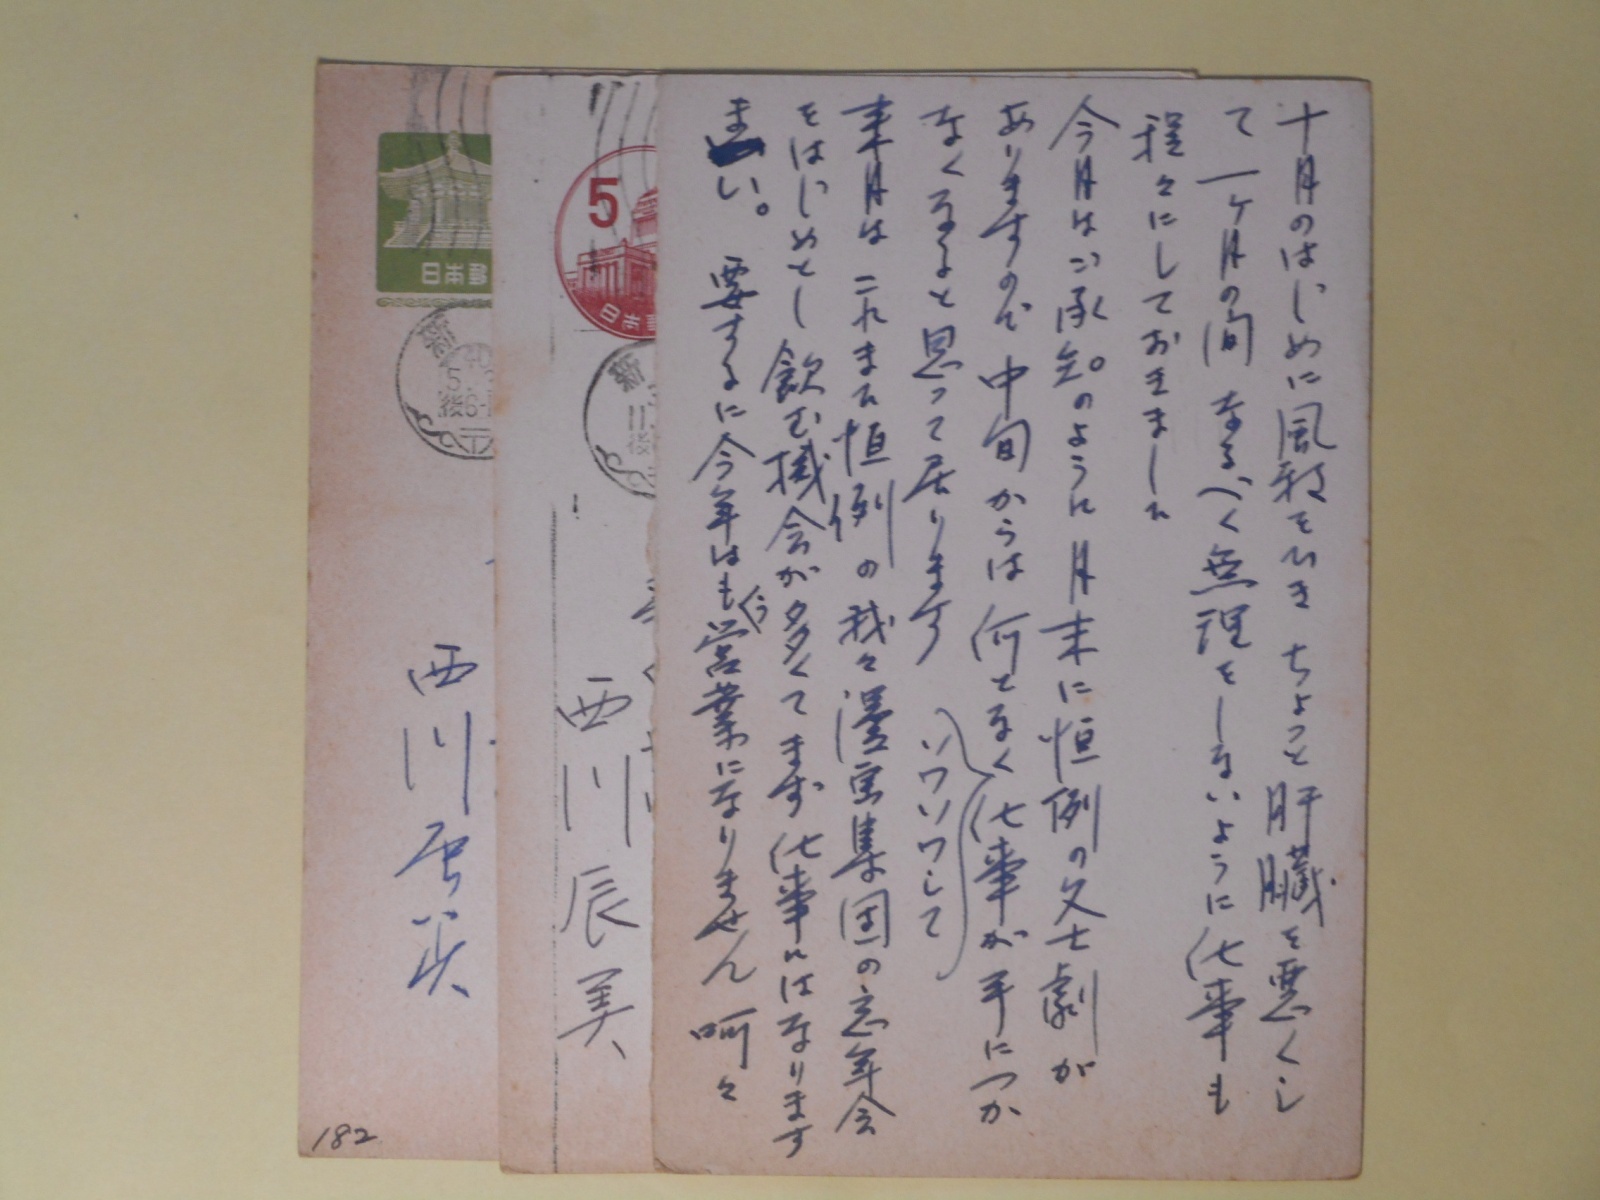 十月のはじめに風邪をひき ちょっと肝臓を悪くし
て一ヶ月の間 なるべく無理をしないように仕事も
程々にしておきました
今月はご承知のように 月末に恒例の文士劇が
ありますので 中旬からは 何となく仕事が手につか
なくなると思って居ります ソワソワして
来月は これまた恒例の 我々漫画集団の忘年会
をはじめとし 飲む機会が多くて まず仕事にはなります
まい。 要するに今年はもう営業になりません 呵々
5
日本郵
新
11
後
西川辰美
日本郵
新
40
5
後6-
西川辰美
182